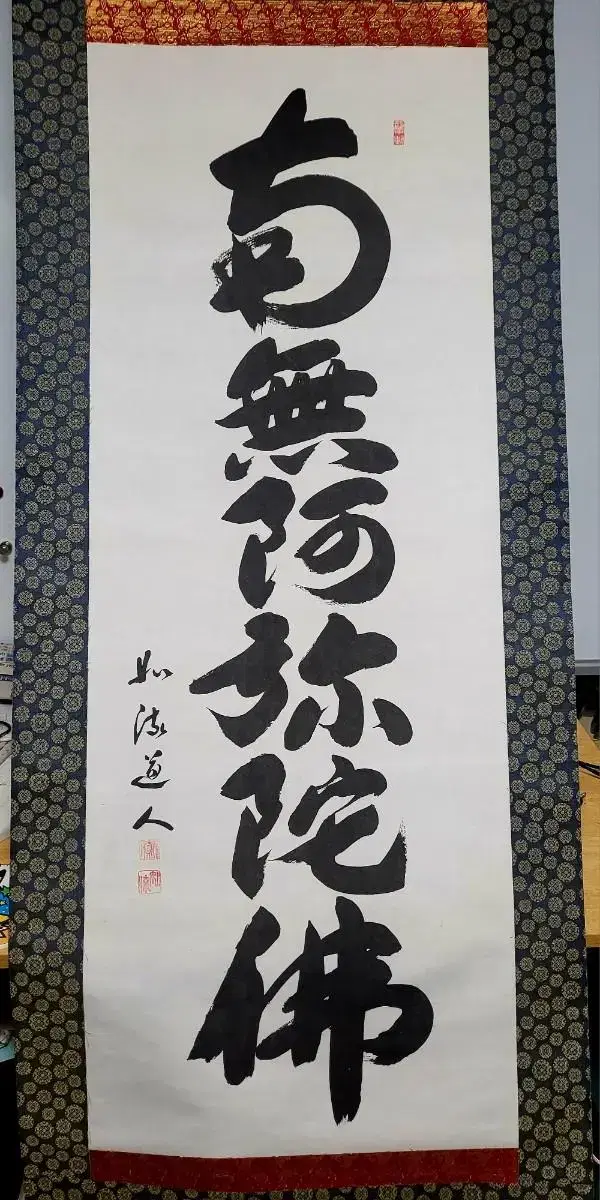 南無阿弥陀佛
如法道人